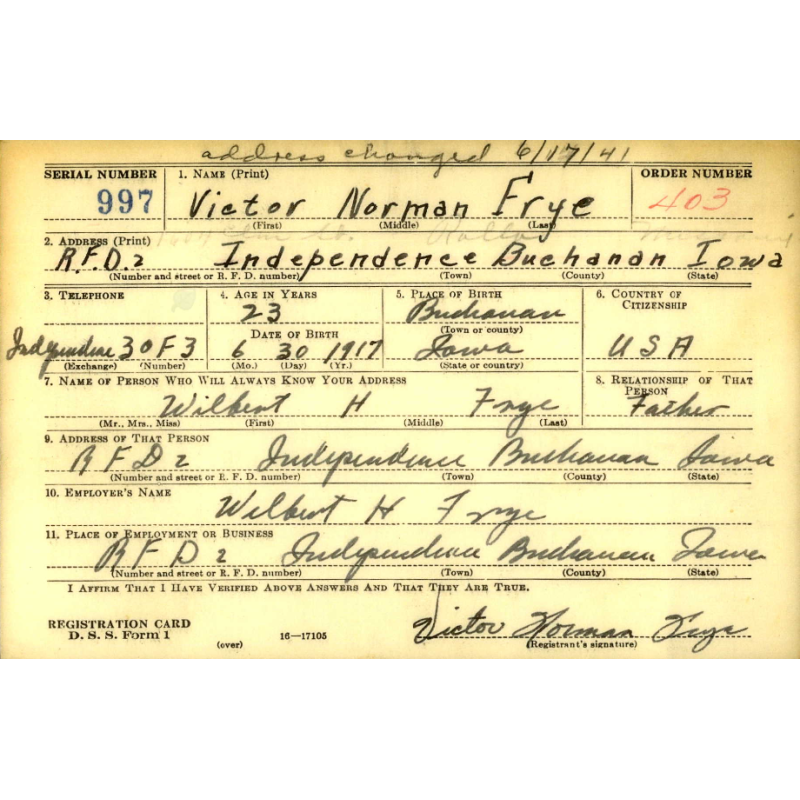 address changed 6/17/41
SERIAL NUMBER 1. NAME (Print) ORDER NUMBER
997 Victor Norman Frye 403
(First) (Middle) (Last)
2. ADDRESS (Print)
R.F.D. 2 Independence Buchanan Iowa
(Number and street or R. F. D. number) (Town) (County) (State)
3. TELEPHONE 4. AGE IN YEARS 5. PLACE OF BIRTH 6. COUNTRY OF CITIZENSHIP
23 Buchanan
DATE OF BIRTH (Town or county)
Independence 30F3 6 30 1917 Iowa USA
(Exchange) (Number) (Mo.) (Day) (Yr.) (State or country)
7. NAME OF PERSON WHO WILL ALWAYS KNOW YOUR ADDRESS 8. RELATIONSHIP OF THAT PERSON
Wilbert H Frye Father
(Mr., Mrs., Miss) (First) (Middle) (Last)
9. ADDRESS OF THAT PERSON
RFD 2 Independence Buchanan Iowa
(Number and street or R. F. D. number) (Town) (County) (State)
10. EMPLOYER'S NAME
Wilbert H Frye
11. PLACE OF EMPLOYMENT OR BUSINESS
RFD 2 Independence Buchanan Iowa
(Number and street or R. F. D. number) (Town) (County) (State)
I AFFIRM THAT I HAVE VERIFIED ABOVE ANSWERS AND THAT THEY ARE TRUE.
REGISTRATION CARD
D. S. S. Form 1 16—17105 Victor Norman Frye
(over) (Registrant's signature)